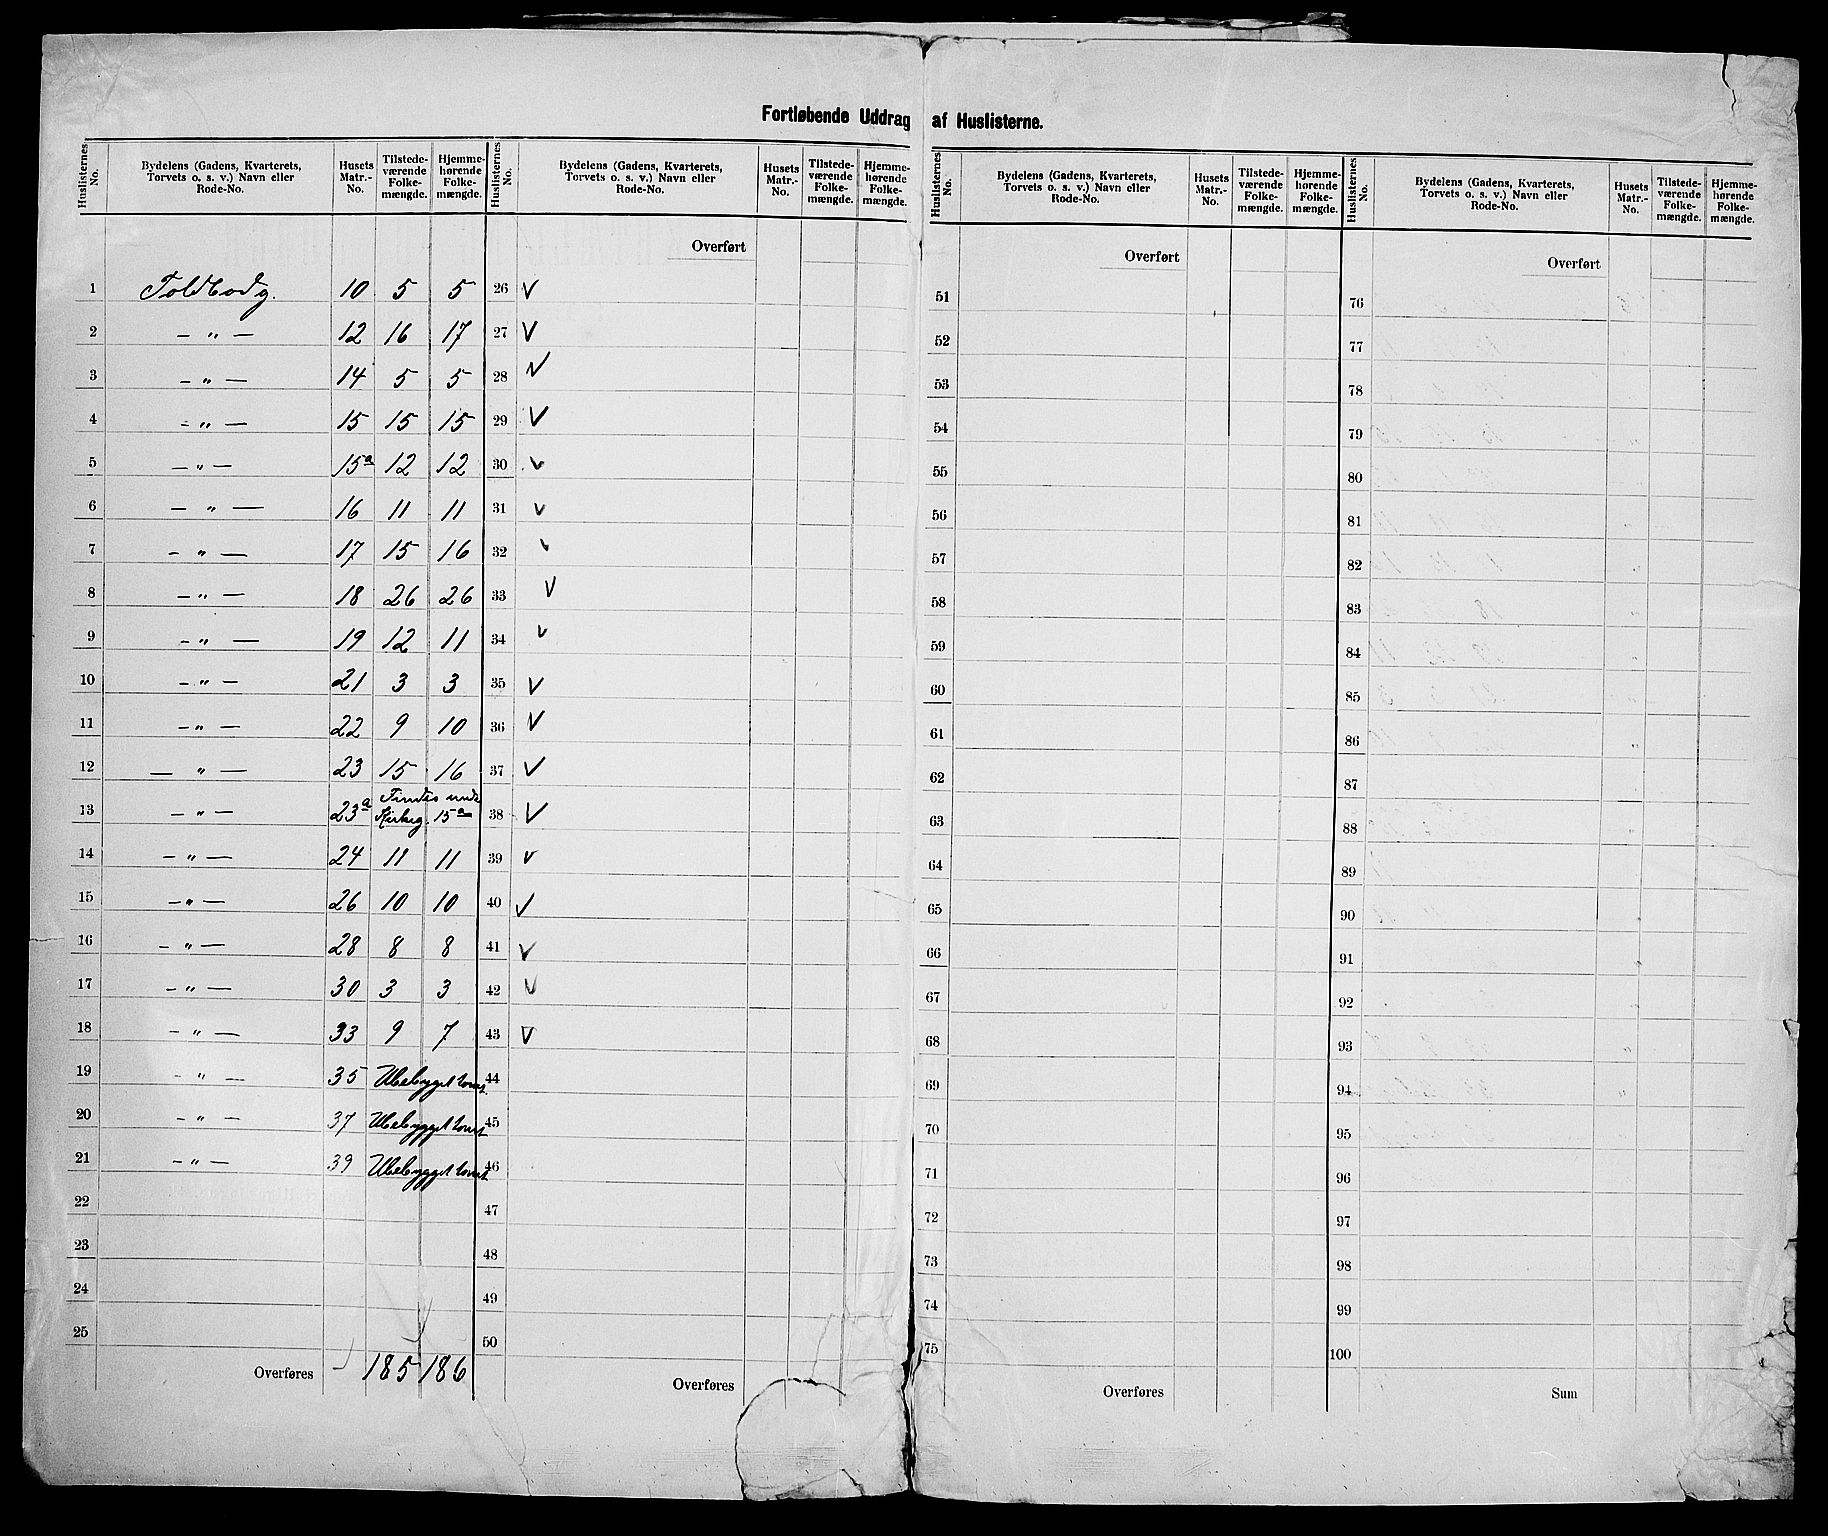 Fortløbende Uddrag af Huslisterne.
Huslisternes No. | Bydelens (Gadens, Kvarterets, Torvets o. s. v.) Navn eller Rode-No. | Husets Matr.-No. | Tilstedeværende Folkemængde. | Hjemmehørende Folkemængde.
1 Toldbodg. 10 5 5
2 — " — 12 16 17
3 — " — 14 5 5
4 — " — 15 15 15
5 — " — 15a 12 12
6 — " — 16 11 11
7 — " — 17 15 16
8 — " — 18 26 26
9 — " — 19 12 11
10 — " — 21 3 3
11 — " — 22 9 10
12 — " — 23 15 16
13 — " — 23a Findes unde Kirkeg. 15a
14 — " — 24 11 11
15 — " — 26 10 10
16 — " — 28 8 8
17 — " — 30 3 3
18 — " — 33 9 7
19 — " — 35 Ubebygget tomt
20 — " — 37 Ubebygget tomt
21 — " — 39 Ubebygget tomt
22
23
24
25
Overføres 185 186
Huslisternes No. | Bydelens (Gadens, Kvarterets, Torvets o. s. v.) Navn eller Rode-No. | Husets Matr.-No. | Tilstedeværende Folkemængde. | Hjemmehørende Folkemængde.
Overført
26 V
27 V
28 V
29 V
30 V
31 V
32 V
33 V
34 V
35 V
36 V
37 V
38 V
39 V
40 V
41 V
42 V
43 V
44
45
46
47
48
49
50
Overføres
Huslisternes No. | Bydelens (Gadens, Kvarterets, Torvets o. s. v.) Navn eller Rode-No. | Husets Matr.-No. | Tilstedeværende Folkemængde. | Hjemmehørende Folkemængde.
Overført
51
52
53
54
55
56
57
58
59
60
61
62
63
64
65
66
67
68
69
70
71
72
73
74
75
Overføres
Huslisternes No. | Bydelens (Gadens, Kvarterets, Torvets o. s. v.) Navn eller Rode-No. | Husets Matr.-No. | Tilstedeværende Folkemængde. | Hjemmehørende Folkemængde.
Overført
76
77
78
79
80
81
82
83
84
85
86
87
88
89
90
91
92
93
94
95
96
97
98
99
100
Sum